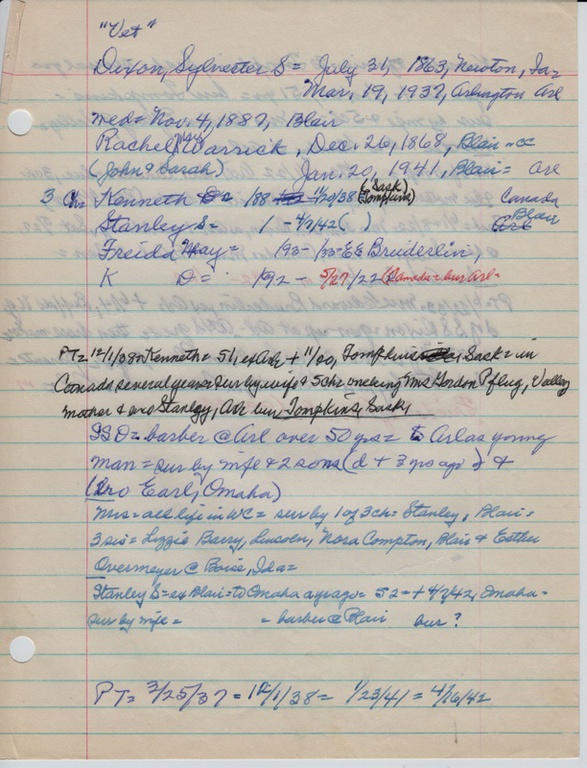 "Vet"
Dixon, Sylvester S = July 31, 1863, Newton, Ia =
Mar. 19, 1937, Arlington Arl
med = Nov. 4, 1887, Blair
Rachel Warrick, Dec. 26, 1868, Blair =
(John & Sarah) Jan. 20, 1941, Blair = Arl
3 Ch = Kenneth 188 11/20/38 (Tompkins, Sask) Canada
Stanley S = 1 - 4/7/42 ( ) Blair
Freida May = 193- /33 = E E Bruiderlin,
K D = 192 - 5/27/22 (Canada = bur Arl =
PT = 12/1/38 = Kenneth = 51, ex Arl + 11/20, Tompkins, Sask = in
Canada several years = sur by wife & 5 ch = one being Mrs Gordon Pflug, Valley
mother & bro Stanley, Arl bur, Tompkins, Sask,
SSD = barber @ Arl over 50 yrs = to Arl as young
man = sur by wife & 2 sons (d + 3 yrs ago) &
(bro Earl, Omaha)
Mrs = all life in WC = sur by 1 of 3 ch = Stanley, Blair =
3 sis = Lizzie Barry, Lincoln, Nora Compton, Blair & Esther
Overmeyer @ Boise, Ida =
Stanley S = ex Blair = to Omaha a yr ago = 52 = + 4/7/42, Omaha =
sur by wife = = barber @ Blair bur ?
PT = 3/25/37 = 12/1/38 = 1/23/41 = 4/16/42